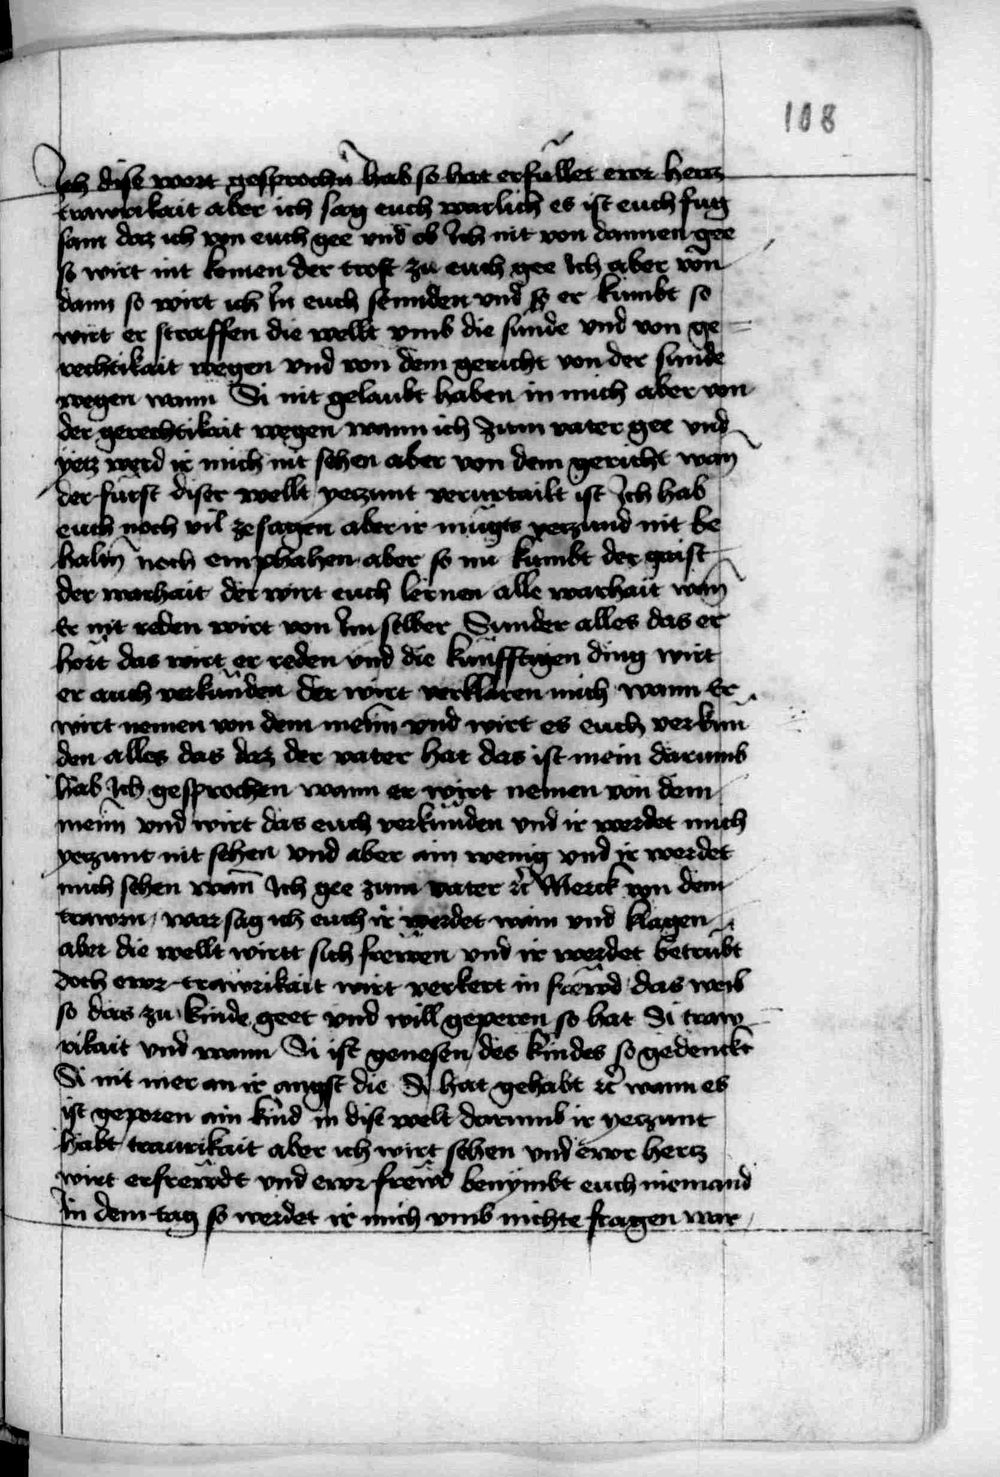 108
Ich dise wort gesprochn̄ hab so hat erfüllet ewr hertz
trawrikait aber ich sag euch warlich es ist euch fug
sam daz ich von euch gee und ob Ich nit von dannen gee
so wirt nit komen der trost zu euch gee Ich aber von
dann so wirt ich In euch sennden und so er kumbt so
wirt er straffen die wellt vmb die sünde vnd von ge
rechtikait wegen vnd von dem gericht von der sunde
wegen wann Si nit gelaubt haben in mich aber von
der gerechtikait wegen wann ich zum vater gee vnd
yetz werd ir mich nit sehen aber von dem gericht wan̄
der fürst diser wellt yetzunt verurtailt ist Ich hab
euch noch vil ze sagen aber ir mügts yetzund nit be
haltn̄ noch emphahen aber so nu kumbt der gaist
der warhait der wirt euch lernen alle warhait wan̄
Er nit reden wirt von Im selber Sunder alles das er
hört das wirt er reden vnd die künfftigen ding wirt
er auch verkünden der wirt verklären mich wann Er
wirt nemen von dem meim vnd wirt es euch verkun
den alles das daz der vater hat das ist mein darumb
hab Ich gesprochen wann er wirt nemen von dem
meim vnd wirt das euch verkünden vnd ir werdet mich
yetzunt nit sehen vnd aber ain wenig vnd ir werdet
mich sehen wan̄ Ich gee zum vater ꝛc̄ Merck von dem
trawrn war sag ich euch ir werdet wain vnd klagen
aber die wellt wirtt sich frewen vnd ir werdet betrübt
doch ewr trawrikait wirt verkert in frewd das weib
so das zu kinde geet vnd will geperen so hat Si traw
rikait vnd wann Si ist genesen des kindes so gedenckt
Si nit mer an ir angst die Si hat gehabt ꝛc̄ wann es
ist geporen ain kind in dise welt darumb ir yetzunt
habt traurikait aber ich wirt sehen vnd ewr hertz
wirt erfrewdt vnd ewr frewd benymbt euch niemand
In dem tag so werdet ir mich vmb nichte fragen war